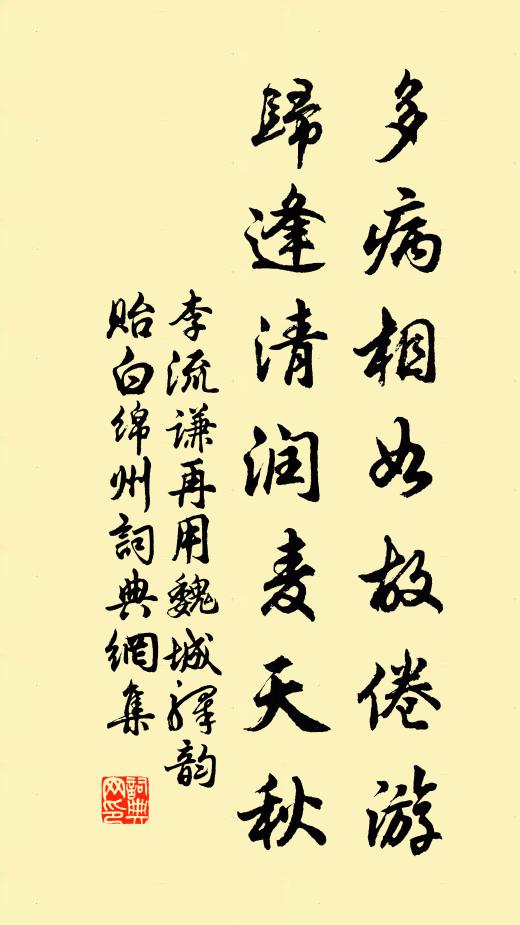 多病相如故倦游
歸逢清润麦天秋
李流谦再用魏城驛韵
贻白绵州詞典網集
詞典网印